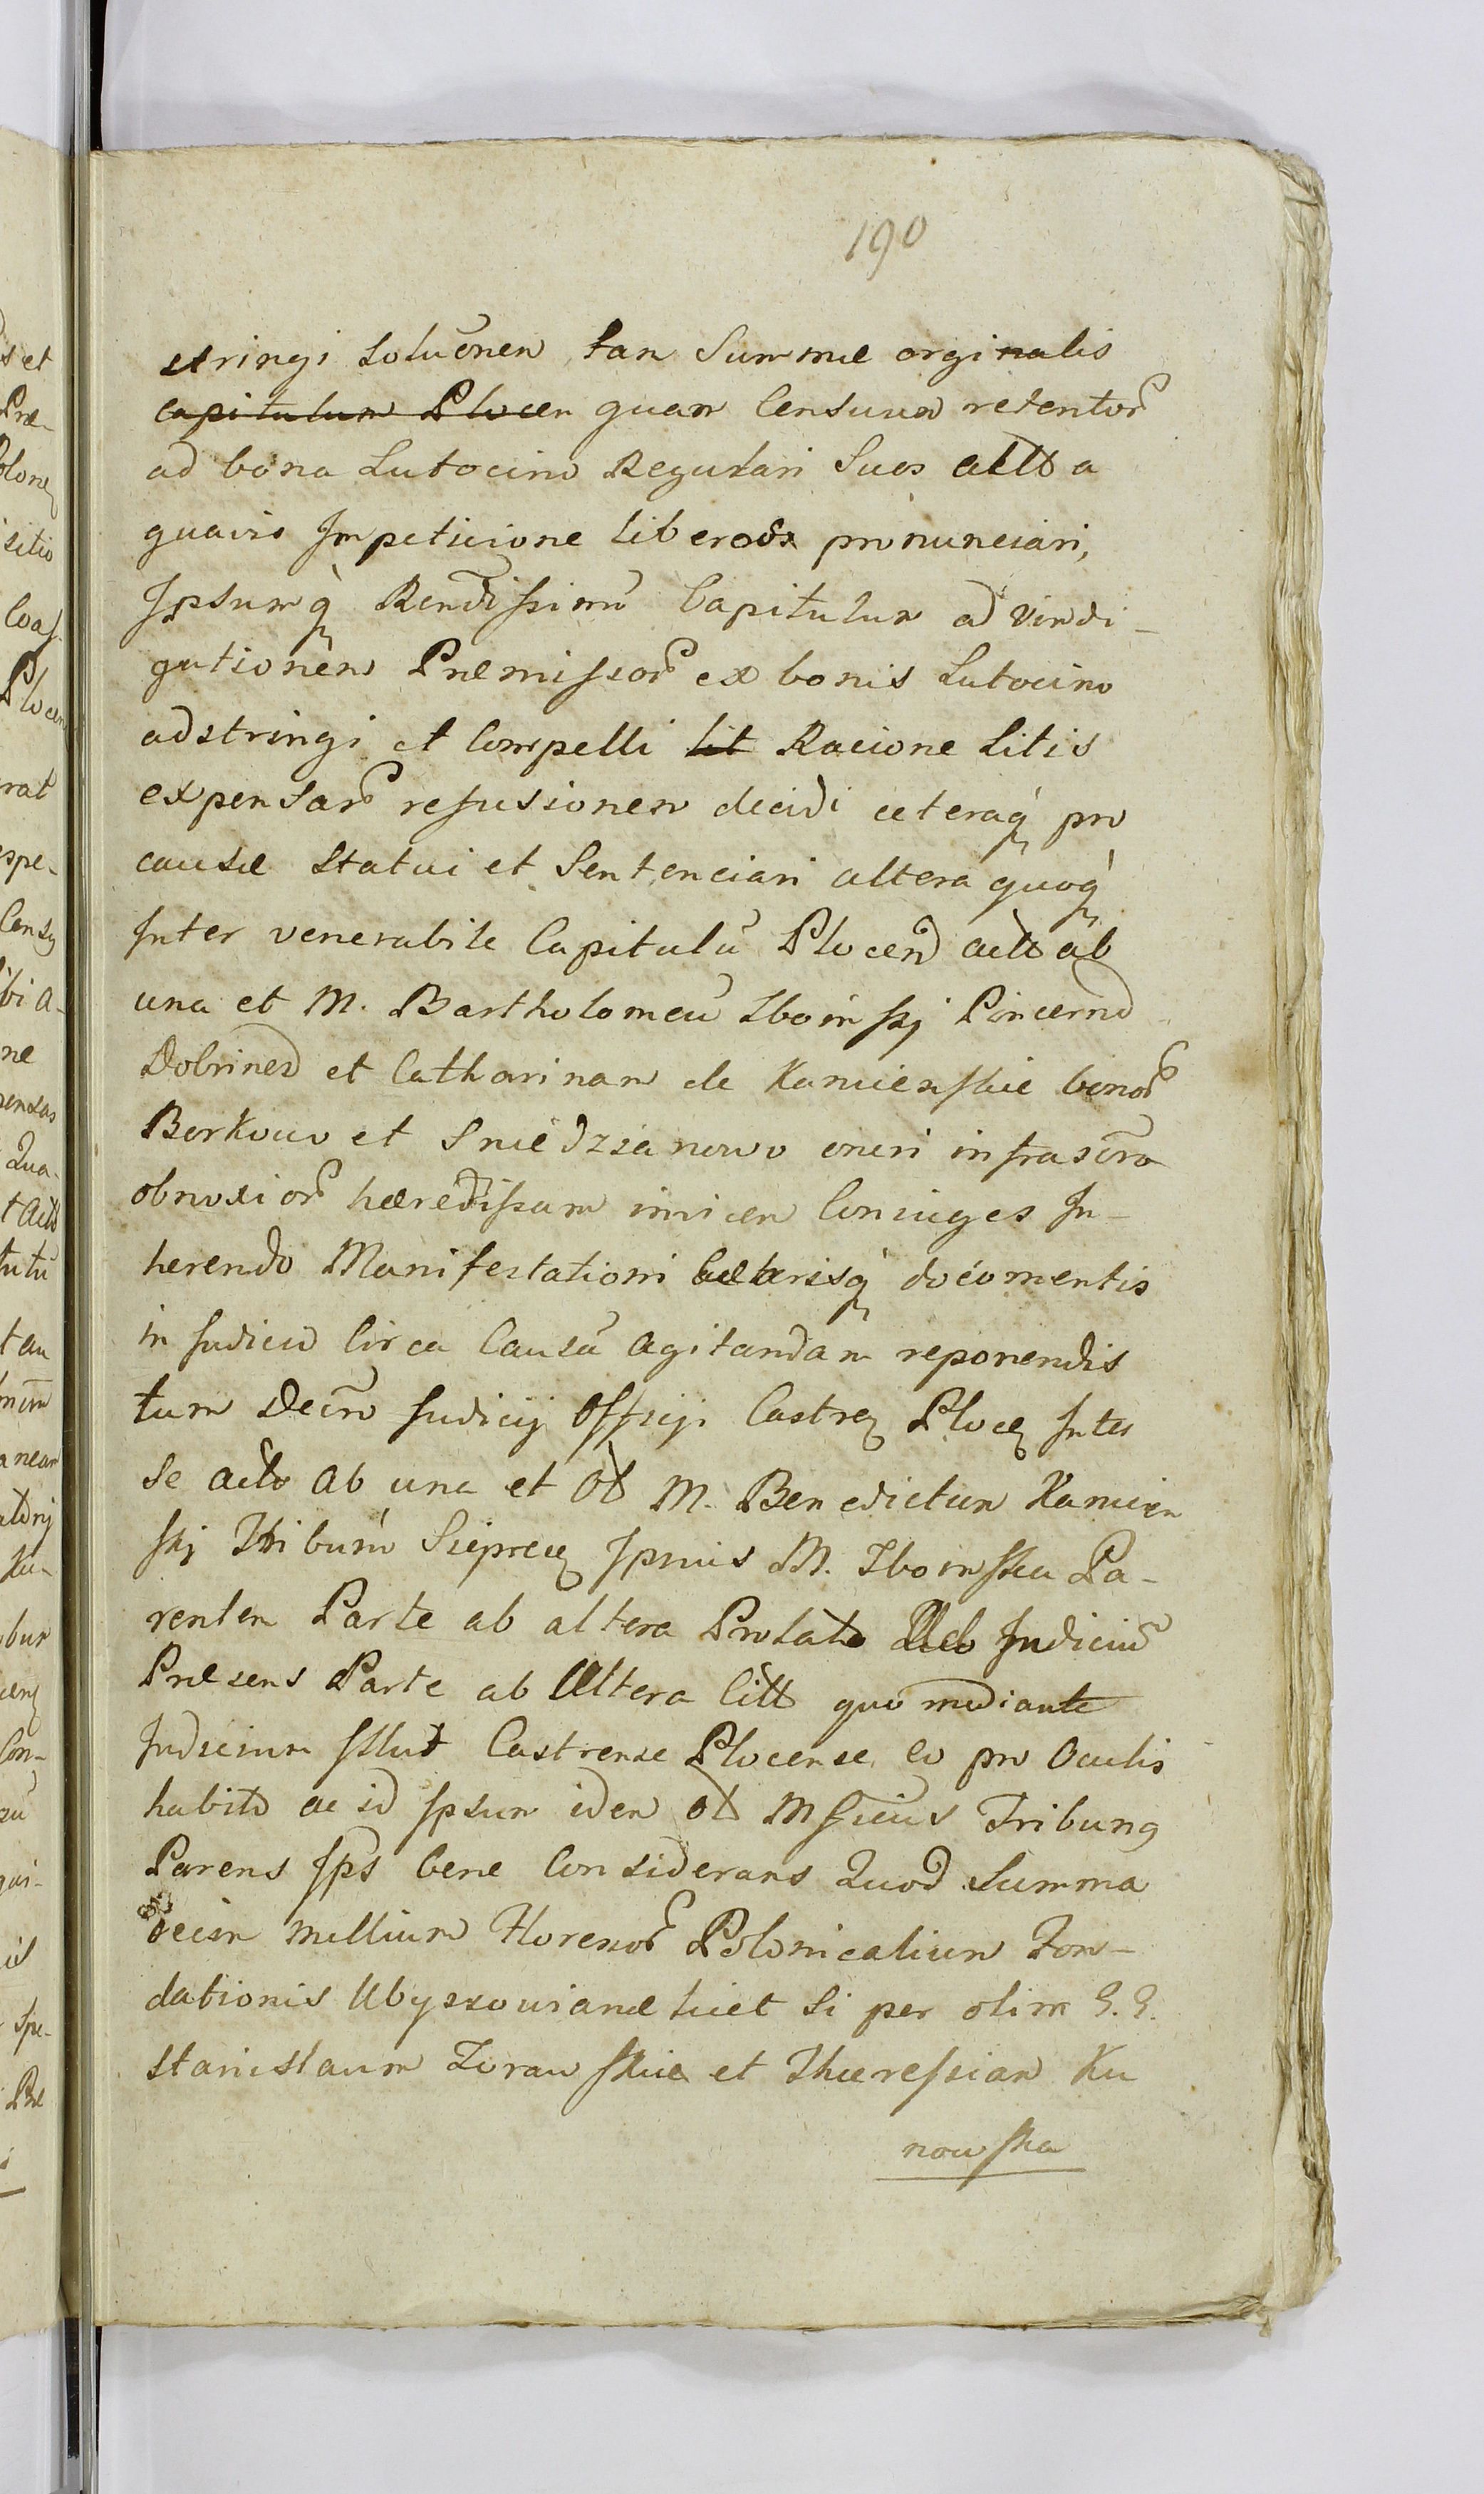 190
stringi Soluõnen tan Summæ orginalis
capitulum Plocen quam Censuum retentor̃
ad bona Lutocino Regulari Suos actt a
quavis Impeticione liberos pronunciari,
Ipsumq̀ Rendissimũ Capitulum ad vindi-
gationem Præmissor̃ ex bonis Lutocino
adstringi et Compelli lit Racione Litis
expensar̃ refusionem decidi ceteraq̀ pro
causæ Statui et Sentenciari altera quoq̀
Inter venerabile Capitulũ Plocen actt ab
una et M. Bartholomeũ Zboinskj Pincernã
Dobrinen et Catharinam de Kamienskie bonor̃
Borkowo et Sniedzianowo oneri infrascro
obnoxior̃ hæredissam invicem Coniuges In-
herendo Manifestationi Cæterisq̀ documentis
in Judicio Circa Causã agitandam reponendis
tum Decro Judicij Officij Castreñ Ploceñ Inter
se actt ab una et Ol M. Benedictum Kamien
skj Tribunũ Sieprceñ Ipsius M. Zboinska Pa-
rentem Parte ab altera Prolato Ad Judiciũ
Præsens Parte ab Altera Citt quo mediante
Judicium Illud Castrense Plocense eo pro Oculis
habito ac id Ipsum idem ol Mficus Tribunq
Parens Ips bene Considerans Quod Summa
decim millium Florenor̃ Polonicalium Fon-
dationis Ubyszowianæ licet Si per olim G. G.
Stanislaum Zorawskie et Theressiam Ku
nowska